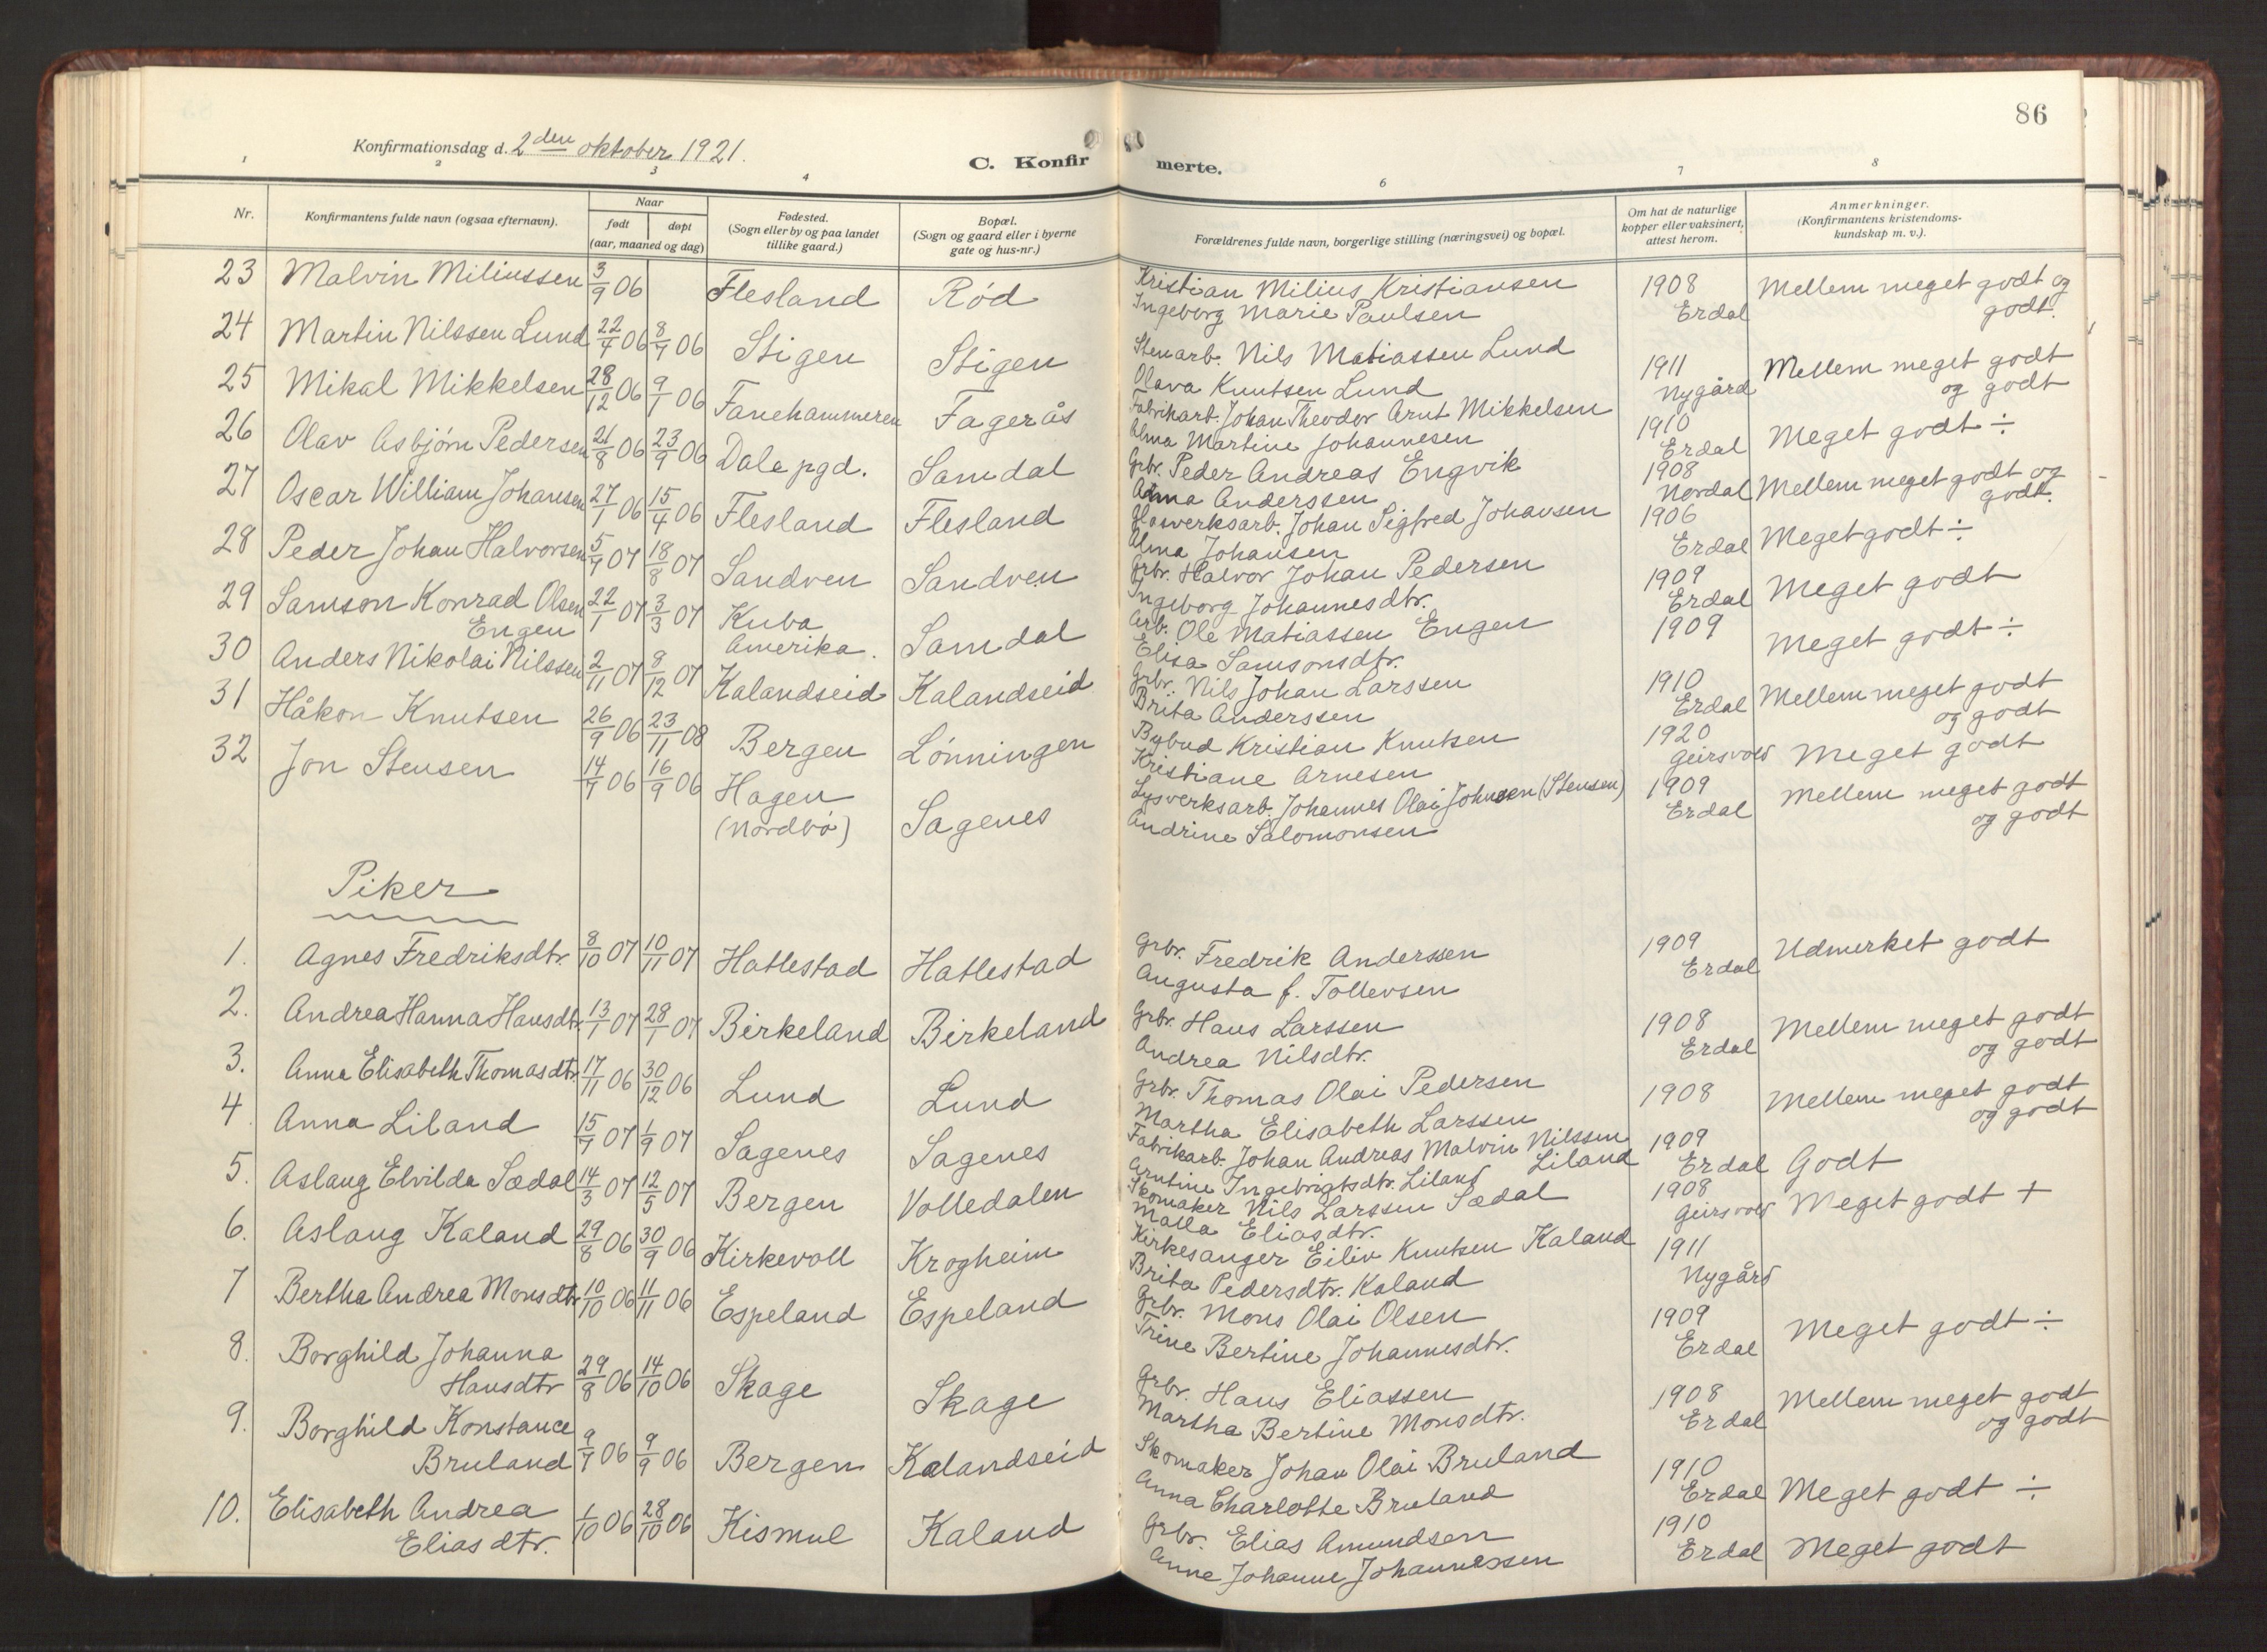 86
Konfirmationsdag d. 2den oktober 1921.
C. Konfirmerte.
1 2 3 4 6 7 8
Nr. | Konfirmantens fulde navn (ogsaa efternavn). | Naar født døpt (aar, maaned og dag) | Fødested. (Sogn eller by og paa landet tillike gaard.) | Bopæl. (Sogn og gaard eller i byerne gate og hus-nr.) | Forældrenes fulde navn, borgerlige stilling (næringsvei) og bopæl. | Om hat de naturlige kopper eller vaksinert, attest herom. | Anmerkninger. (Konfirmantens kristendoms-kundskap m. v.).
23 Malvin Miliussen 3/9 06 Flesland Rød Kristian Milius Kristiansen 1908 Mellem meget godt og
Ingeborg Marie Paulsen Erdal godt.
24 Martin Nilssen Lund 22/4 06 8/7 06 Stigen Stigen Stenarb. Nils Matiassen Lund 1911 Mellem meget godt
Olava Knutsen Lund Nygård og godt
25 Mikal Mikkelsen 28/12 06 9/1 06 Fanehammeren Fagerås Fabrikarb. Johan Theodor Arnt Mikkelsen 1910 Meget godt ÷
Alma Martine Johannesen Erdal
26 Olav Asbjørn Pedersen 21/8 06 23/9 06 Dale pgd. Samdal Grbr. Peder Andreas Engvik 1908 Mellem meget godt og
Anna Anderssen Nordal godt.
27 Oscar William Johansen 27/1 06 15/4 06 Flesland Flesland Glasverksarb. Johan Sigfred Johansen 1906 Meget godt ÷
Alma Johansen Erdal
28 Peder Johan Halvorsen 5/7 07 18/8 07 Sandven Sandven Grbr. Halvor Johan Pedersen 1909 Meget godt
Ingeborg Johannesdtr. Erdal
29 Samson Konrad Olsen 22/1 07 3/3 07 Kuba Samdal Arb. Ole Matiassen Engen 1909 Meget godt ÷
Engen Amerika. Elisa Samsonsdtr.
30 Anders Nikolai Nilssen 2/11 07 8/12 07 Kalandseid Kalandseid Grbr. Nils Johan Larssen 1910 Mellem meget godt
Brita Anderssen Erdal og godt
31 Håkon Knutsen 26/9 06 23/11 08 Bergen Lønningen Bybud Kristian Knutsen 1920 Meget godt
Kristiane Arnesen Geirsvold
32 Jon Stensen 14/7 06 16/9 06 Hagen Sagenes Lysverksarb. Johannes Olai Johnsen (Stensen) 1909 Mellem meget godt
(Nordbø) Andrine Salomonsen Erdal og godt
Piker
1. Agnes Fredriksdtr. 8/10 07 10/11 07 Hatlestad Hatlestad Grbr. Fredrik Anderssen 1909 Udmerket godt
Augusta f. Tollevsen Erdal
2. Andrea Hanna Hansdtr. 13/1 07 28/1 07 Birkeland Birkeland Grbr. Hans Larssen 1908 Mellem meget godt
Andrea Nilsdtr. Erdal og godt
3. Anna Elisabeth Thomasdtr. 17/11 06 30/12 06 Lund Lund Grbr. Thomas Olai Pedersen 1908 Mellem meget godt
Martha Elisabeth Larssen og godt
4. Anna Liland 15/7 07 1/9 07 Sagenes Sagenes Fabrikarb. Johan Andreas Malvin Nilssen Liland 1909 Godt
Arntine Ingebrigtsdtr. Liland Erdal
5. Aslaug Elvilda Sædal 14/3 07 12/5 07 Bergen Volledalen Skomaker Nils Larssen Sædal 1908 Meget godt +
Malla Eliasdtr. Geirsvold
6. Aslaug Kaland 29/8 06 30/9 06 Kirkevoll Krogheim Kirkesanger Eiliv Knutsen Kaland 1911
Brita Pedersdtr. Kaland Nygård
7 Bertha Andrea Monsdtr 10/10 06 11/11 06 Espeland Espeland Grbr. Mons Olai Olsen 1909 Meget godt ÷
Trine Bertine Johannesdtr. Erdal
8. Borghild Johanna 29/8 06 14/10 06 Skage Skage Grbr. Hans Eliassen 1908 Mellem meget godt
Hansdtr Martha Bertine Monsdtr. Erdal og godt
9. Borghild Konstance 9/7 06 9/9 06 Bergen Kalandseid Skomaker Johan Olai Bruland 1910 Meget godt ÷
Bruland Anna Charlotte Bruland Erdal
10. Elisabeth Andrea 1/10 06 28/10 06 Kismul Kaland Grbr. Elias Amundsen 1910 Meget godt
Eliasdtr. Anne Johanne Johannessen Erdal